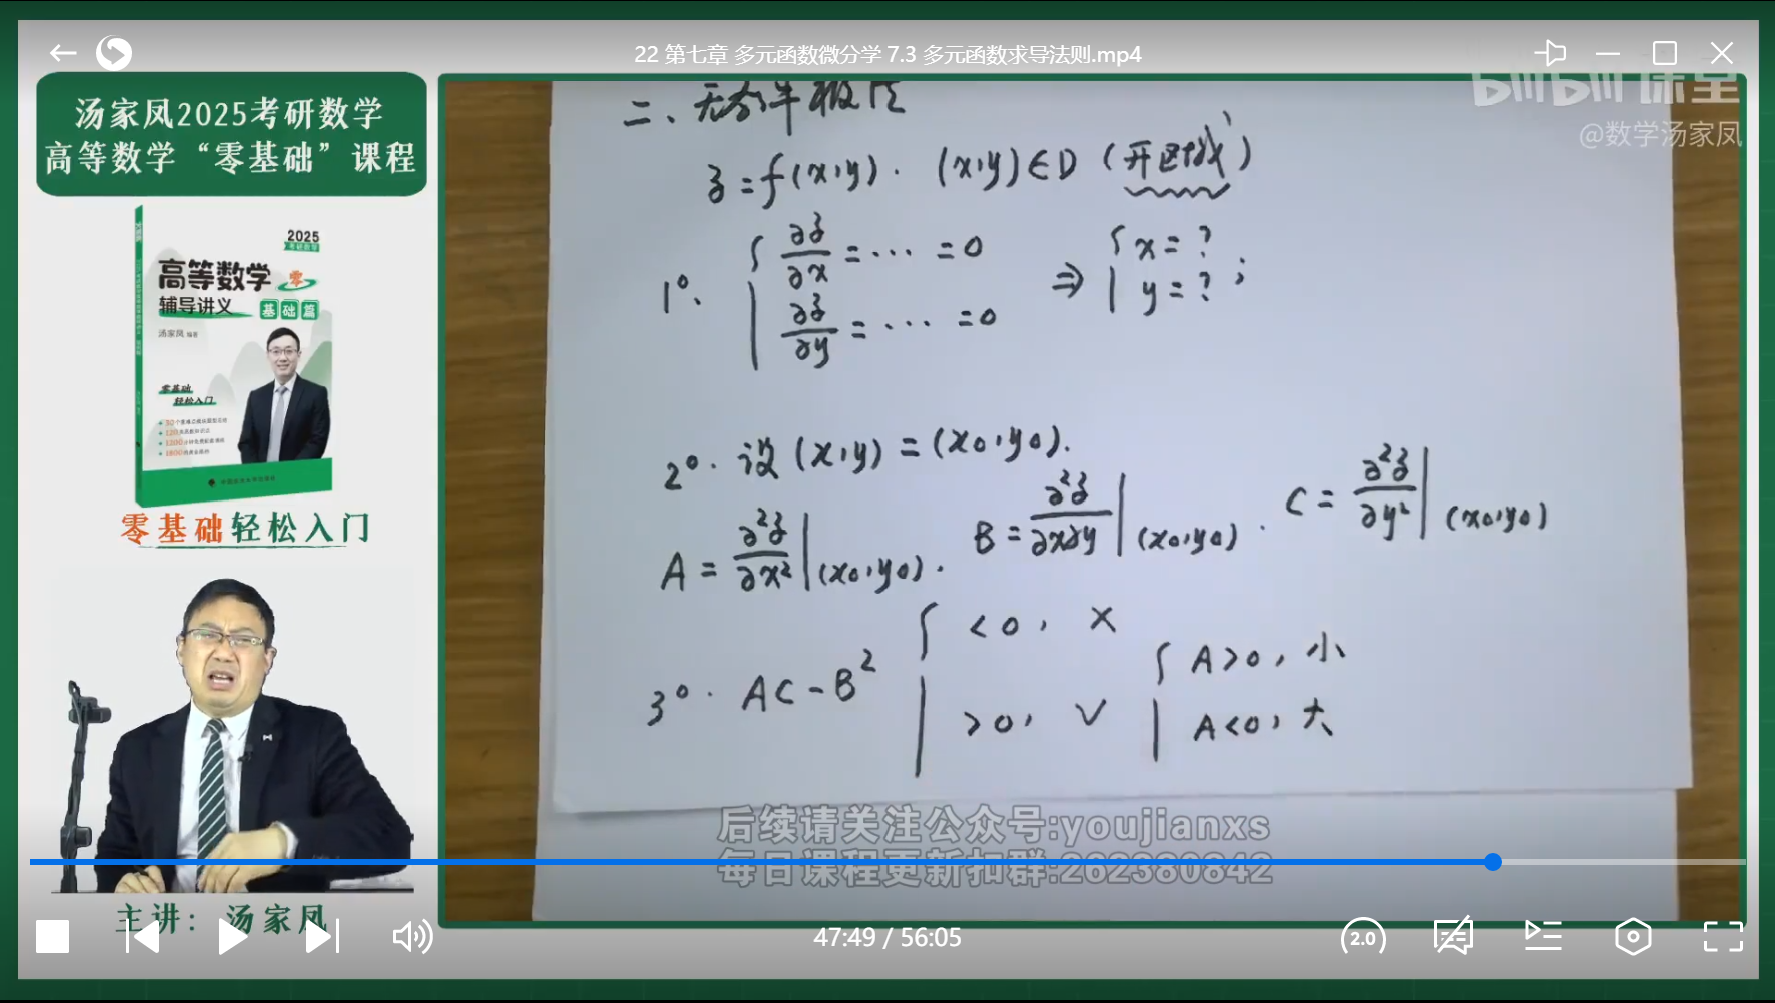 22 第七章 多元函数微分学 7.3 多元函数求导法则.mp4
汤家凤2025考研数学
高等数学“零基础”课程
bilibili 课堂
@数学汤家凤
2025
高等数学 零
辅导讲义 基础篇
汤家凤 编著
零基础
轻松入门
零基础轻松入门
二、无条件极值
z=f(x,y). (x,y)∈D (开区域)
1°. { ∂z/∂x = … = 0
∂z/∂y = … = 0
⇒ { x = ?
y = ? ;
2°. 设 (x,y) = (x₀,y₀).
A = ∂²z/∂x² | (x₀,y₀). B = ∂²z/∂x∂y | (x₀,y₀). C = ∂²z/∂y² | (x₀,y₀)
3°. AC-B² { <0, ×
>0, √ { A>0, 小
A<0, 大
后续请关注公众号:youjianxs
每日课程更新扣群:262380842
主讲: 汤家凤
47:49 / 56:05
2.0